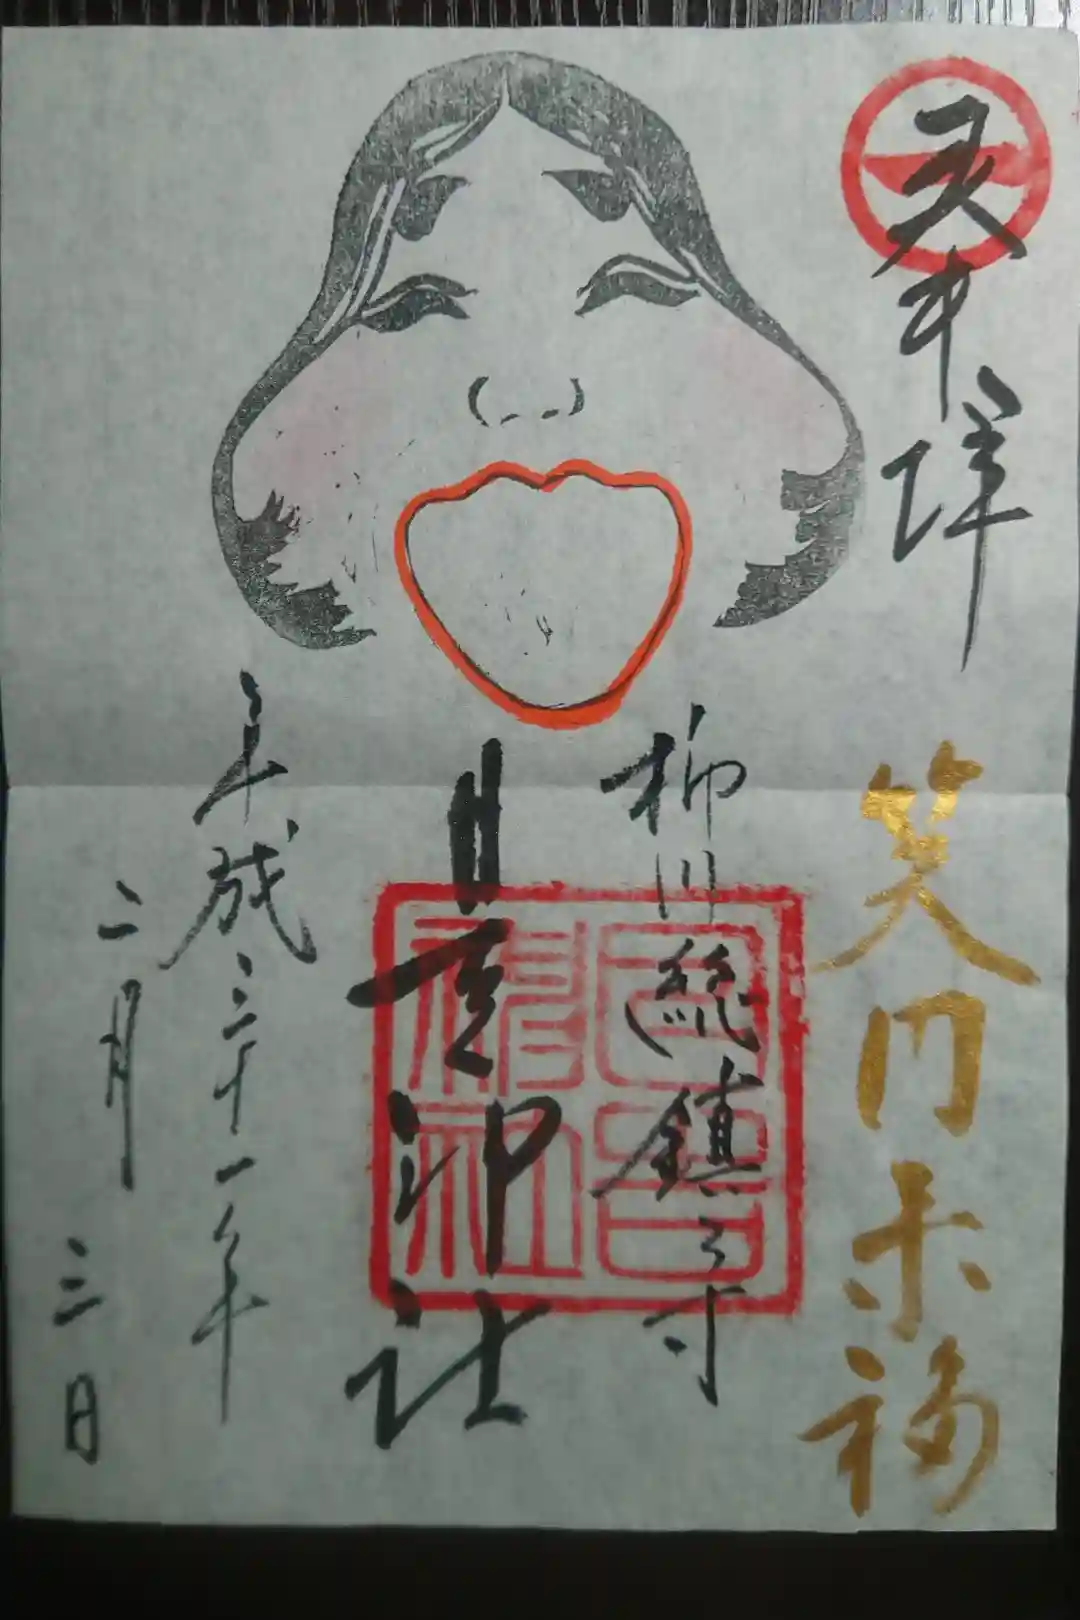 奉拝
笑門来福
柳川總鎮守
日吉神社
日吉神社
平成三十一年
二月三日